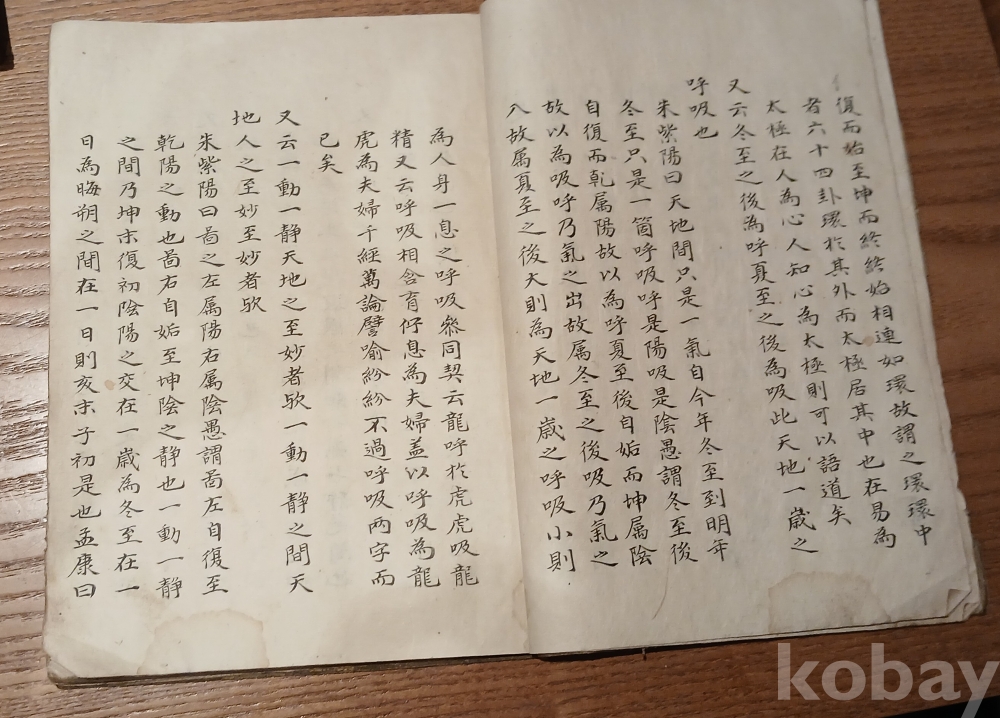 復而始至坤而終終始相連如環故謂之環環中
者六十四卦環於其外而太極居其中也在易為
太極在人為心人知心為太極則可以語道矣
又云冬至之後為呼夏至之後為吸此天地一歲之
呼吸也
朱紫陽曰天地間只是一氣自今年冬至到明年
冬至只是一箇呼吸呼是陽吸是陰愚謂冬至後
自復而乾属陽故以為呼夏至後自姤而坤属陰
故以為吸呼乃氣之出故属冬至之後吸乃氣之
入故属夏至之後大則為天地一歲之呼吸小則
為人身一息之呼吸叅同契云龍呼於虎虎吸龍
精又云呼吸相含育佇息為夫婦盖以呼吸為龍
虎為夫婦千經萬論譬喻紛紛不過呼吸兩字而
已矣
又云一動一静天地之至妙者欤一動一静之間天
地人之至妙至妙者欤
朱紫陽曰啚之左属陽右属陰愚謂啚左自復至
乾陽之動也啚右自姤至坤陰之静也一動一静
之間乃坤末復初陰陽之交在一歲為冬至在一
月為晦朔之間在一日則亥末子初是也孟康曰
kobay